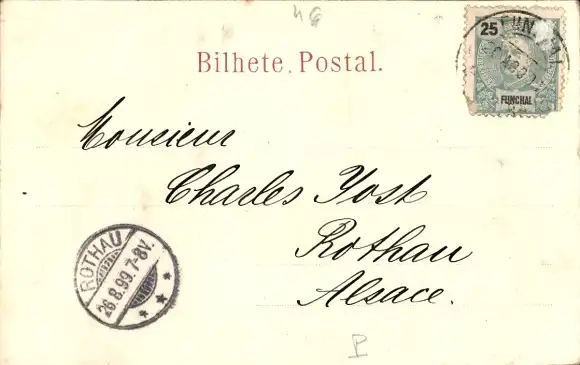 Bilhete Postal.
25
FUNCHAL
Monsieur
Charles Yost
Rothau
Alsace.
ROTHAU
26.8.99.7-8V.
P